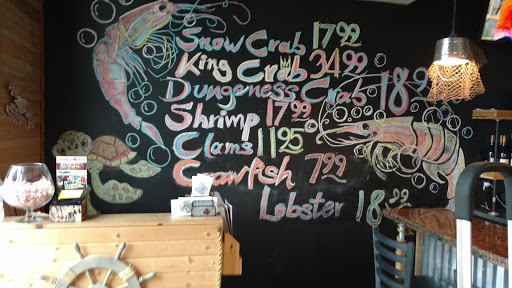 Snow Crab 17 99
King Crab 34 99
Dungeness Crab 18 99
Shrimp 17 99
Clams 11 25
Crawfish 7 99
Lobster 18 99